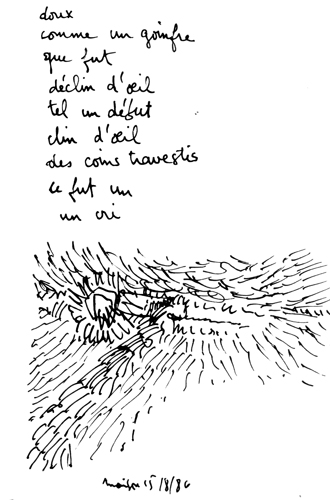 doux
comme un goinfre
que fut
déclin d'œil
tel un début
clin d'œil
des coins travestis
ce fut un
un cri
15/8/86